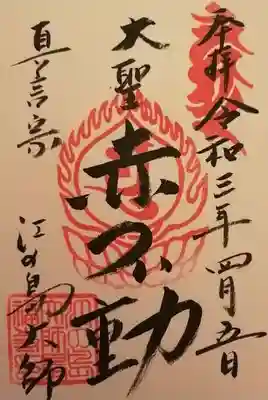 奉拝 令和三年四月五日
大聖
赤不動
真言宗
江の島大師